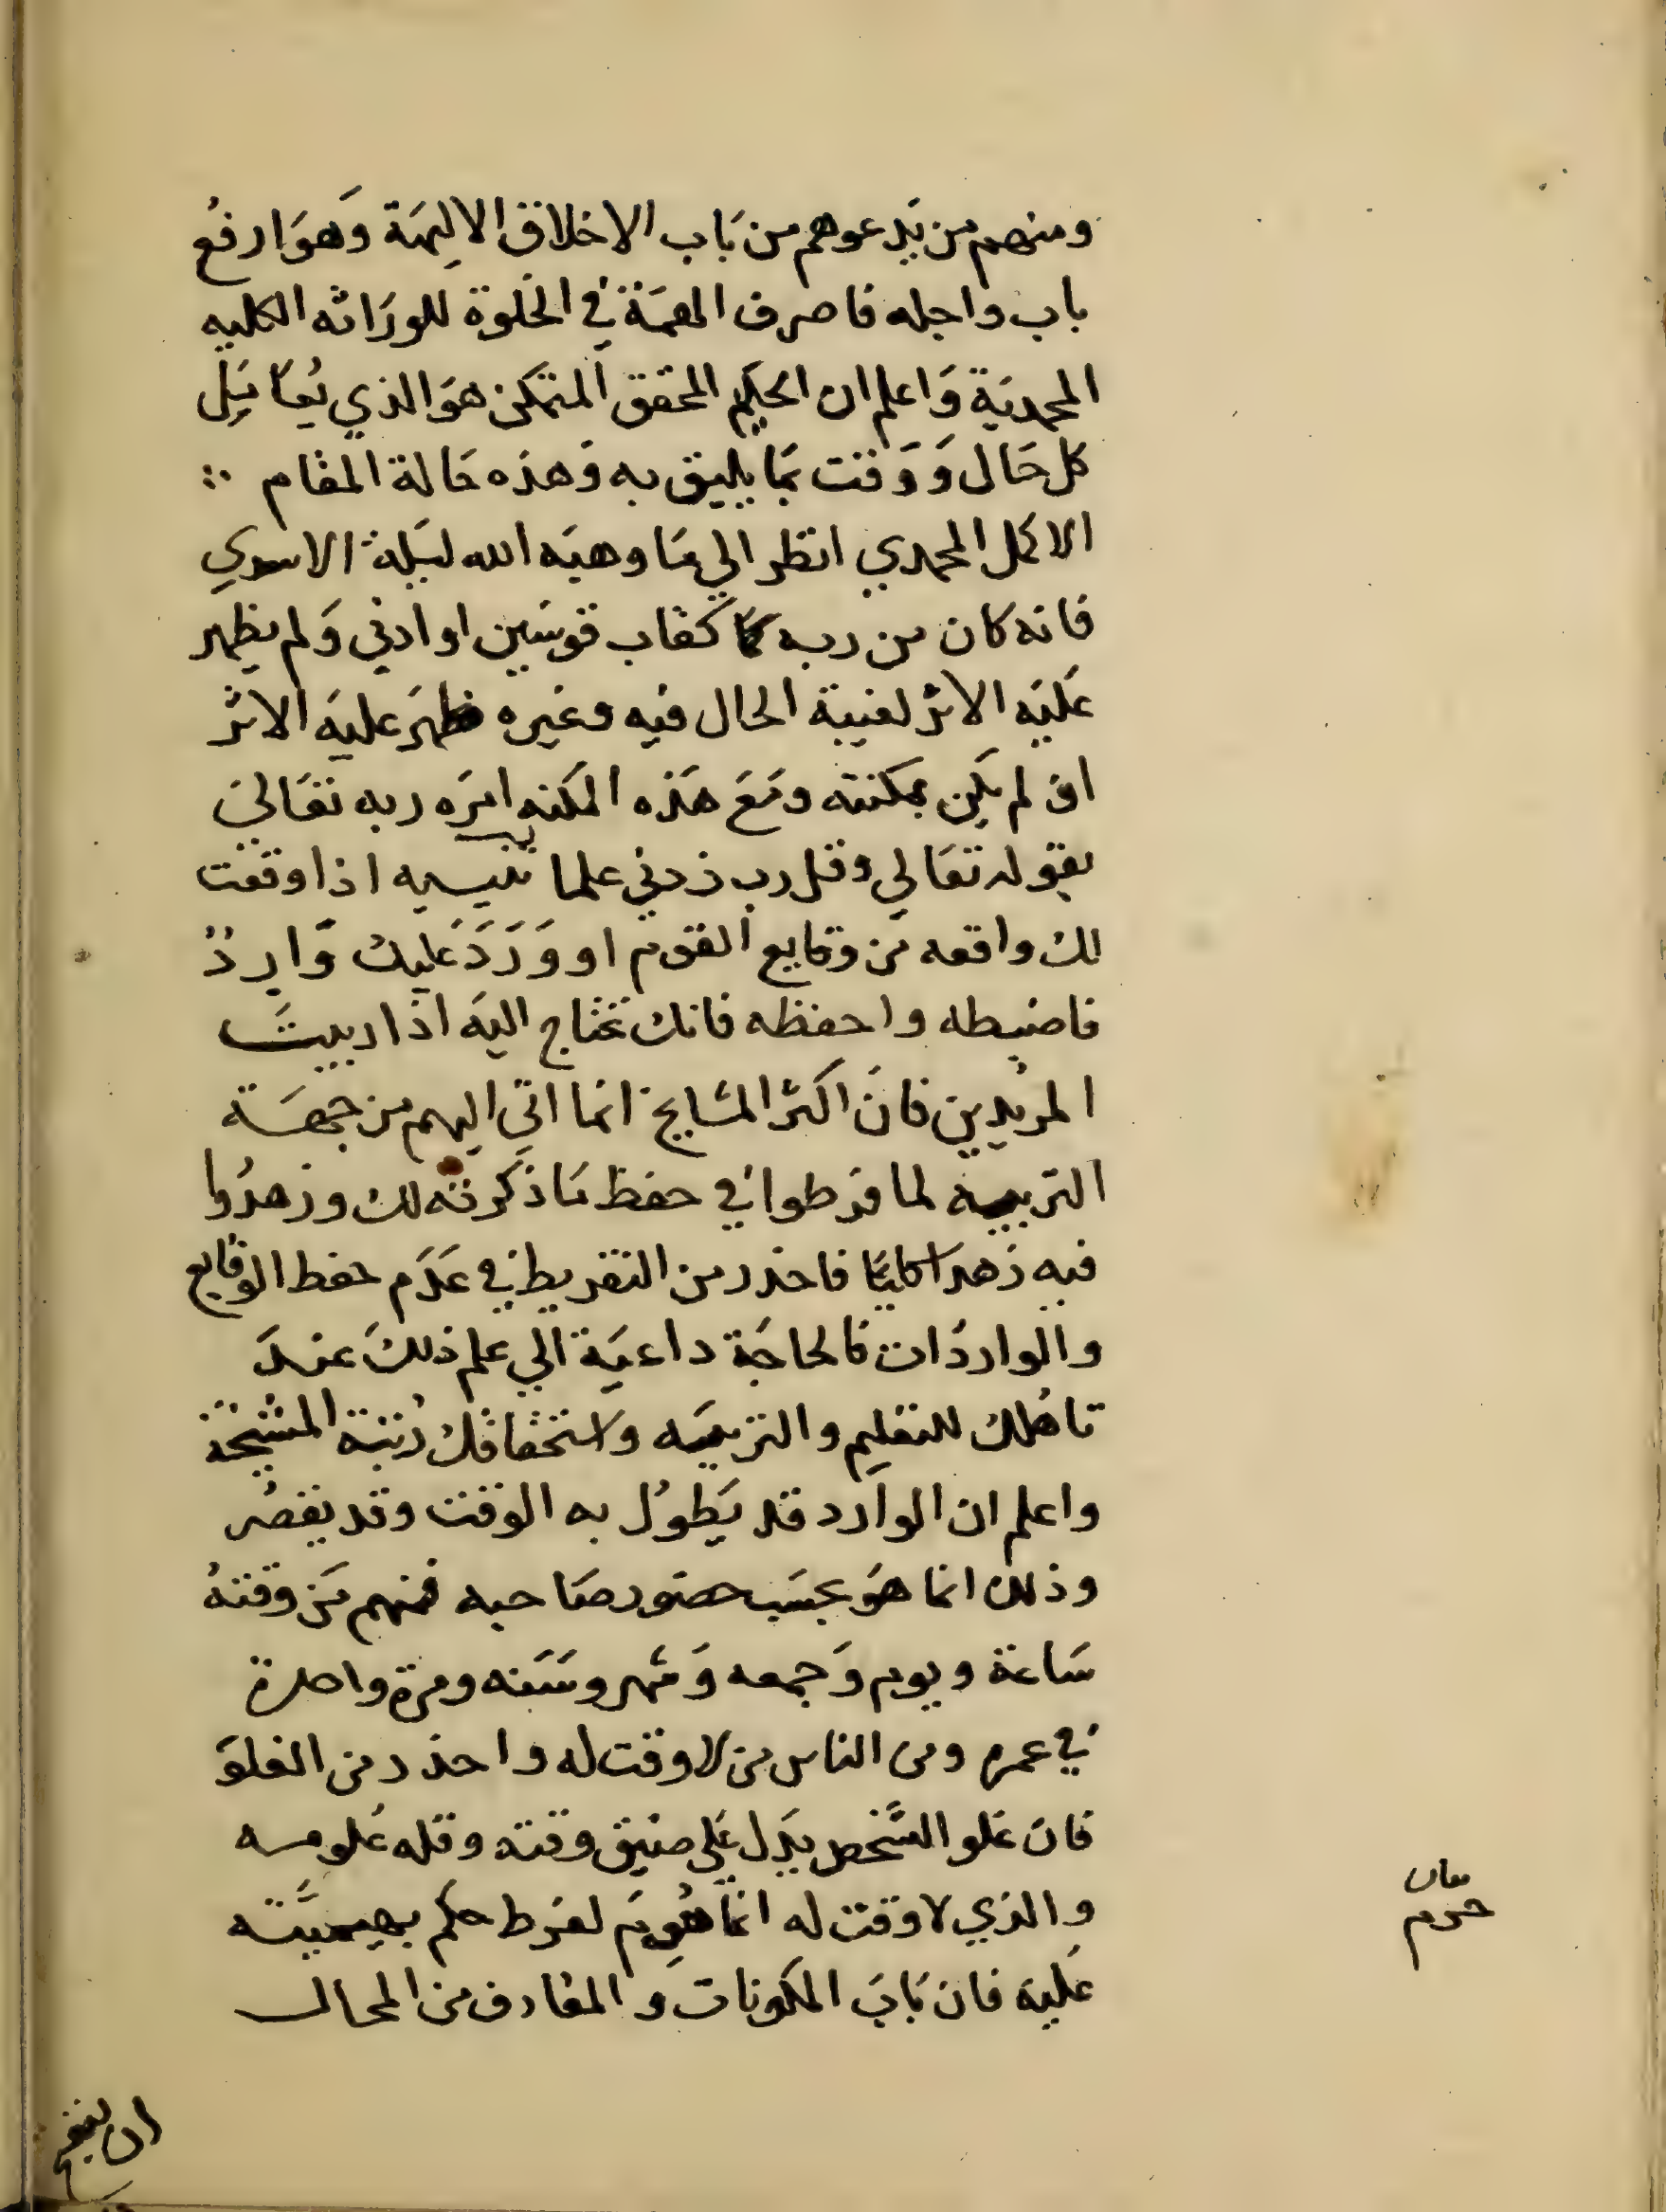 ومنهم من يَدعوهم من بَاب الاخلاق الالِهيَة وَهوَ ارفعُ
باب واجله فاصرف الهمَة في الخلوة للورَاثه الكليه
المحمديَة وَاعلم ان الحكيم المحقق المتمكن هوَ الذي يُعَامِل
كل حَال وَوَقت بمَا يليق به وَهذه حَالة المقام
الاكمل المحمدي انظر الي مَا وهبَه الله ليَلة الاسري
فانه كان من ربه كقاب قوسَين او ادني وَلم يظهر
عَليَه الاثر لغيبة الحال فيه وغيره ظهرَ عليَه الاثر
اذ لم يكَن بمكنته ومَعَ هَذه المكنه امَره ربه تعَالي
بقوله تعَالي وقل رب زدني علما تنبيه اذا وقعت
لك واقعه مَن وقايع القوم او وَرَدَ عَليك وَارِدٌ
فاضبطه واحفظه فانك تحتاج اليَه اذا ربيتَ
المرُيدين فانَ اكثر المشايخ انما اتي اليهم من جهَة
التربيه لما فرطوا في حفظ مَا ذكرته لك وزهدُوا
فيه زهدَا كليًا فاحذر من التفريط في عَدَم حفظ الوقايع
والوارَدَات فالحاجَة داعيَة الي علم ذلكَ عندَ
تاهُلك للتعَليم والتربيَه واستحقاقك رُتبَة المشيخَة
واعلم ان الوارد قد يَطولُ به الوقت وقد يقصُر
وذلك انما هوَ بحسَب حضور صَاحبه فمنهم مَن وقتهُ
سَاعة ويوم وَجمعه وَشهر وسَنه ومرة واحدة
في عمره ومن الناس من لا وقت له واحذر من الغلوَ
فان غلو الشَّخص يَدل عَلي ضيق وقته وقله عُلومه
والذي لا وقت له انمَا هُو لفرط حكم بهيميَّته
عَليَه فان بَابَ الملكونات والمعَارف من المحال
معاں
حرم
ان يفتح